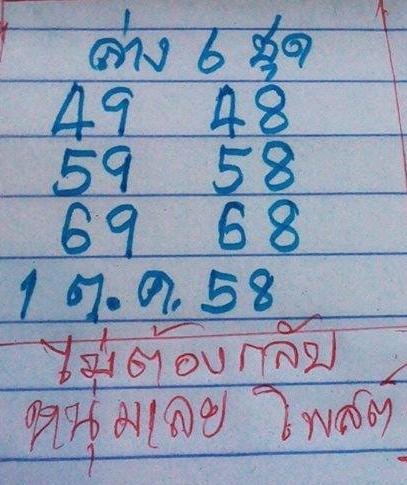 ล่าง 6 ชุด
49 48
59 58
69 68
1 ต.ค. 58
ไม่ต้องกลับ
หนุ่มเลย โพสต์